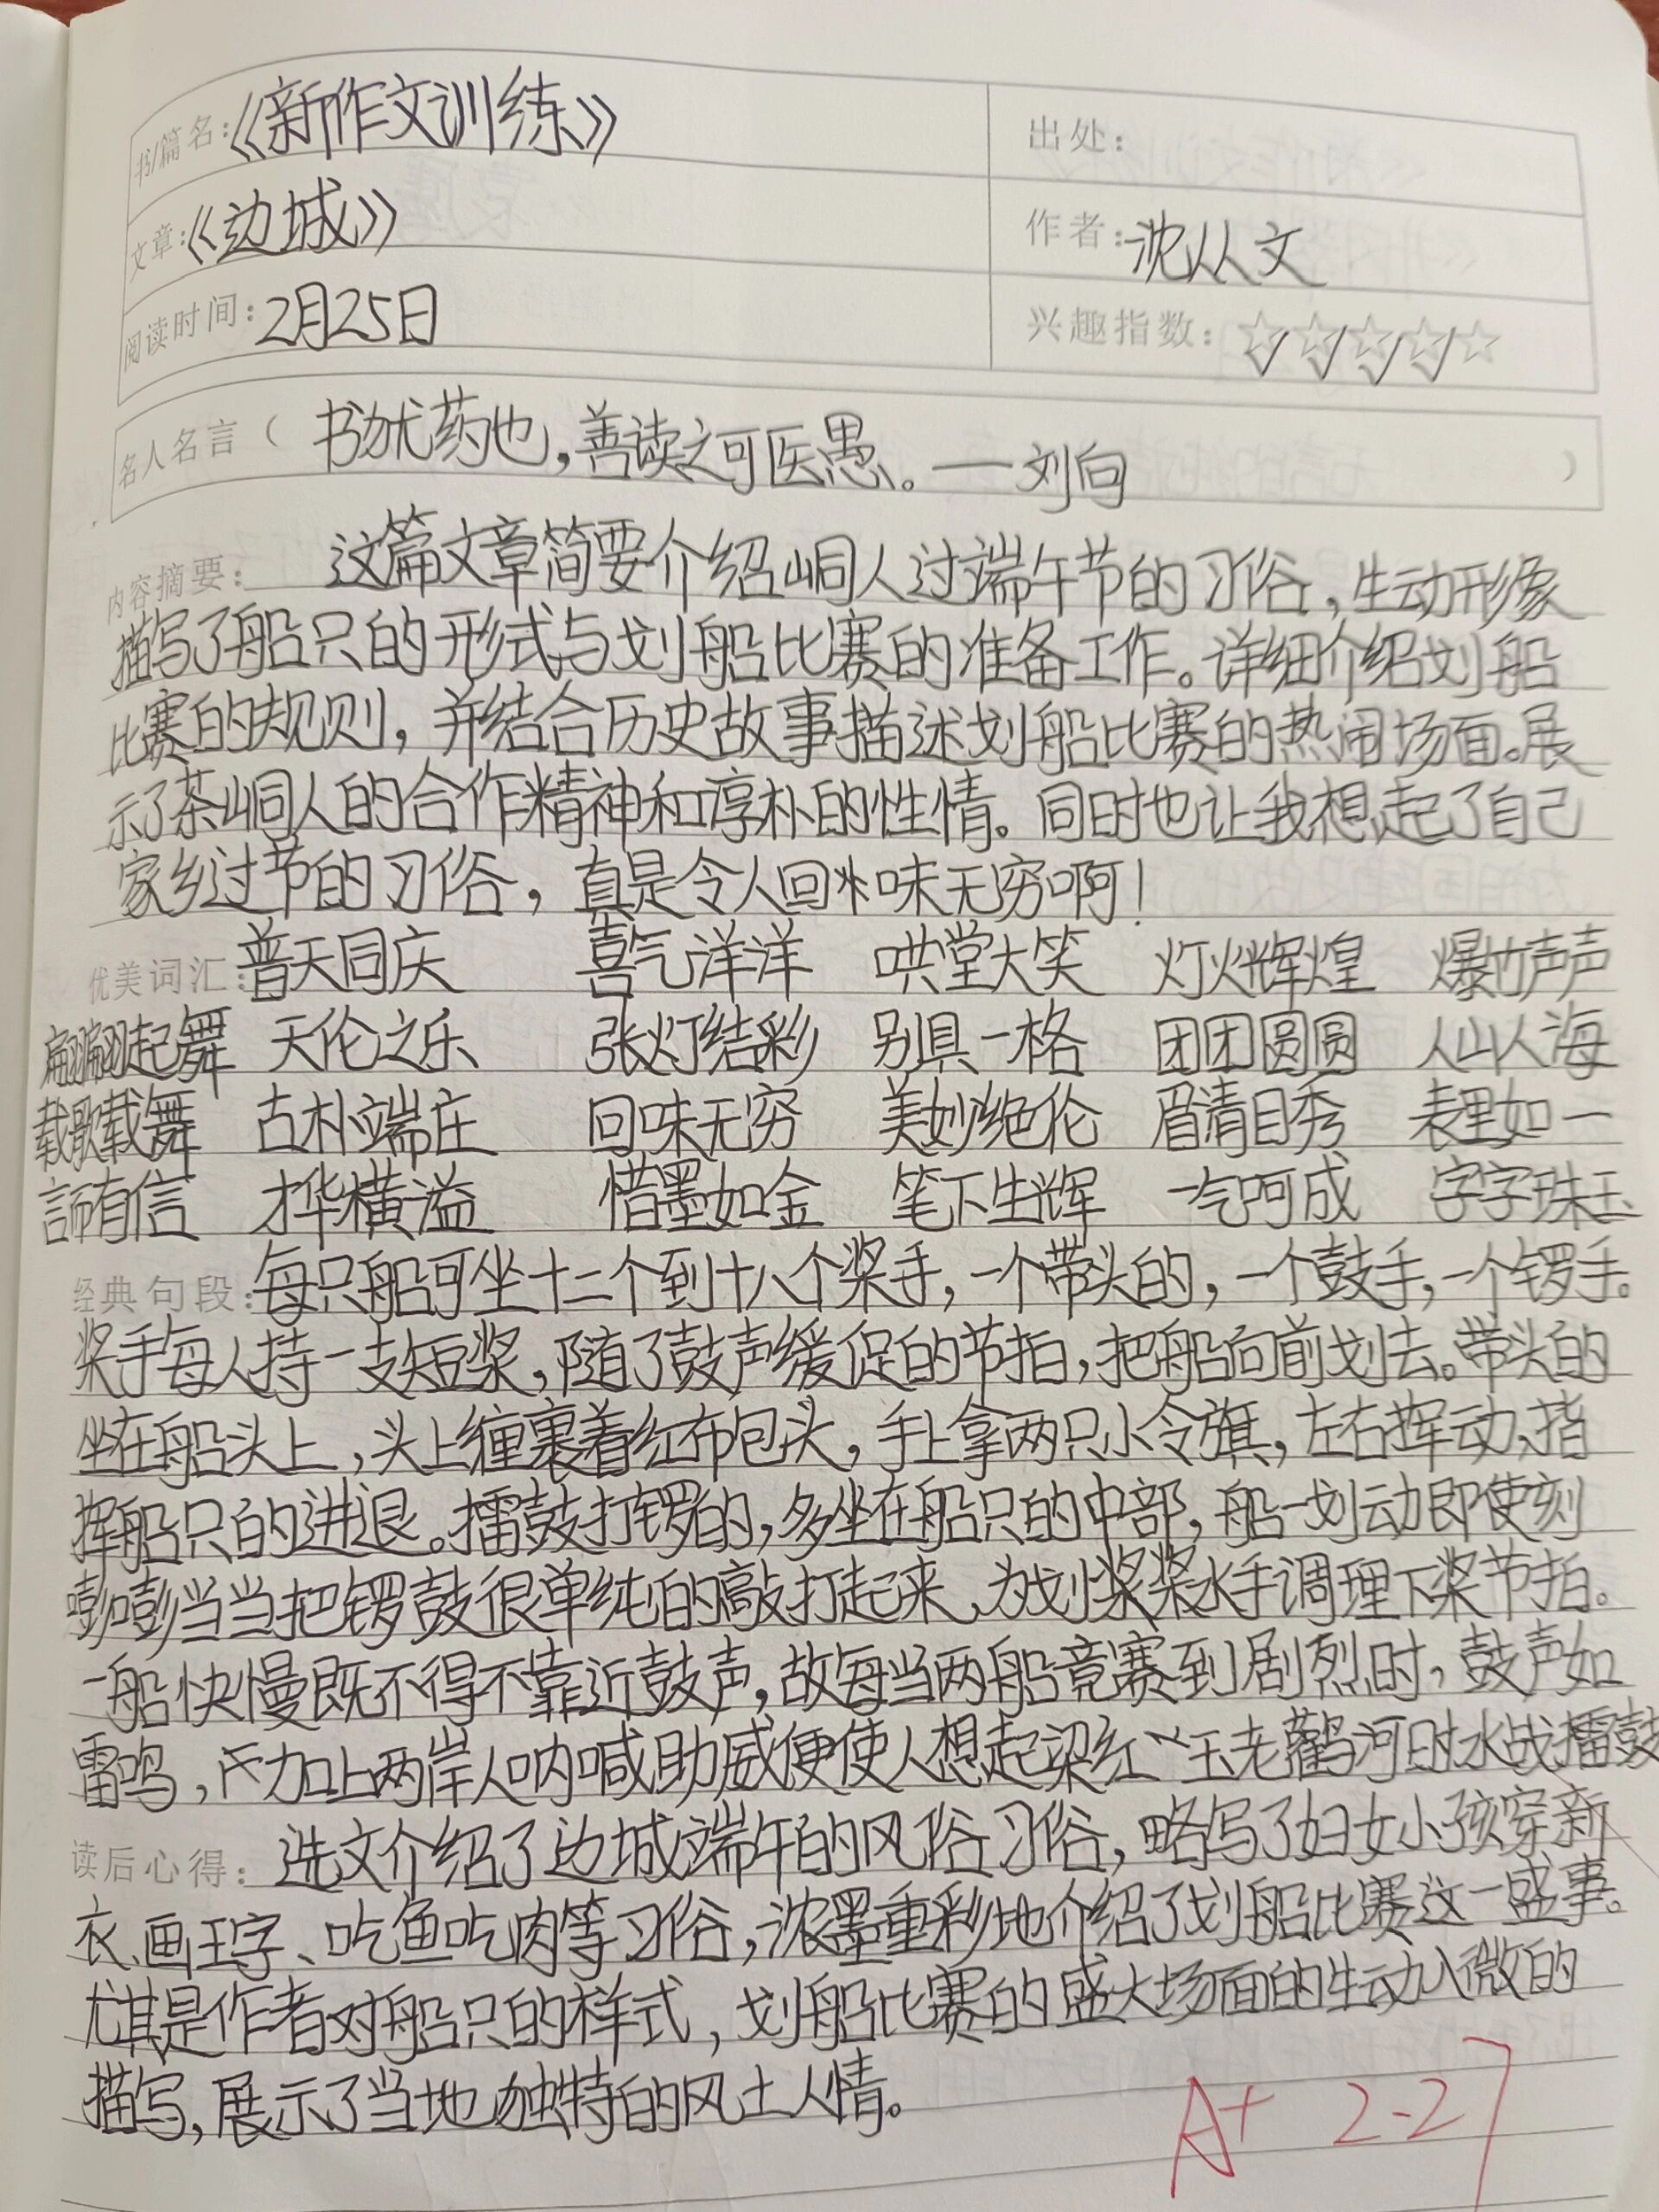 书/篇名：《新作文训练》 出处：
文章：《边城》 作者：沈从文
阅读时间：2月25日 兴趣指数：☆☆☆☆☆
名人名言（ 书犹药也，善读之可医愚。——刘向 ）
内容摘要： 这篇文章简要介绍峒人过端午节的习俗，生动形象
描写了船只的形式与划船比赛的准备工作。详细介绍划船
比赛的规则，并结合历史故事描述划船比赛的热闹场面。展
示了茶峒人的合作精神和淳朴的性情。同时也让我想起了自己
家乡过节的习俗，真是令人回味无穷啊！
优美词汇：普天同庆 喜气洋洋 哄堂大笑 灯火辉煌 爆竹声声
翩翩起舞 天伦之乐 张灯结彩 别具一格 团团圆圆 人山人海
载歌载舞 古朴端庄 回味无穷 美妙绝伦 眉清目秀 表里如一
言而有信 才华横溢 惜墨如金 笔下生辉 一气呵成 字字珠玉
经典句段：每只船可坐十二个到十八个桨手，一个带头的，一个鼓手，一个锣手。
桨手每人持一支短桨，随了鼓声缓促的节拍，把船向前划去。带头的
坐在船头上，头上缠裹着红布包头，手上拿两只小令旗，左右挥动，指
挥船只的进退。擂鼓打锣的，多坐在船只的中部，船一划动即使刻
嘭嘭当当把锣鼓很单纯的敲打起来，为划桨桨水手调理下桨节拍。
一船快慢既不得不靠近鼓声，故每当两船竞赛到剧烈时，鼓声如
雷鸣，加上两岸人呐喊助威便使人想起梁红玉老鹳河时水战擂鼓
读后心得： 选文介绍了边城端午的风俗习俗，略写了妇女小孩穿新
衣、画王字、吃鱼吃肉等习俗，浓墨重彩地介绍了划船比赛这一盛事。
尤其是作者对船只的样式，划船比赛的盛大场面的生动入微的
描写，展示了当地独特的风土人情。
A+ 2-27